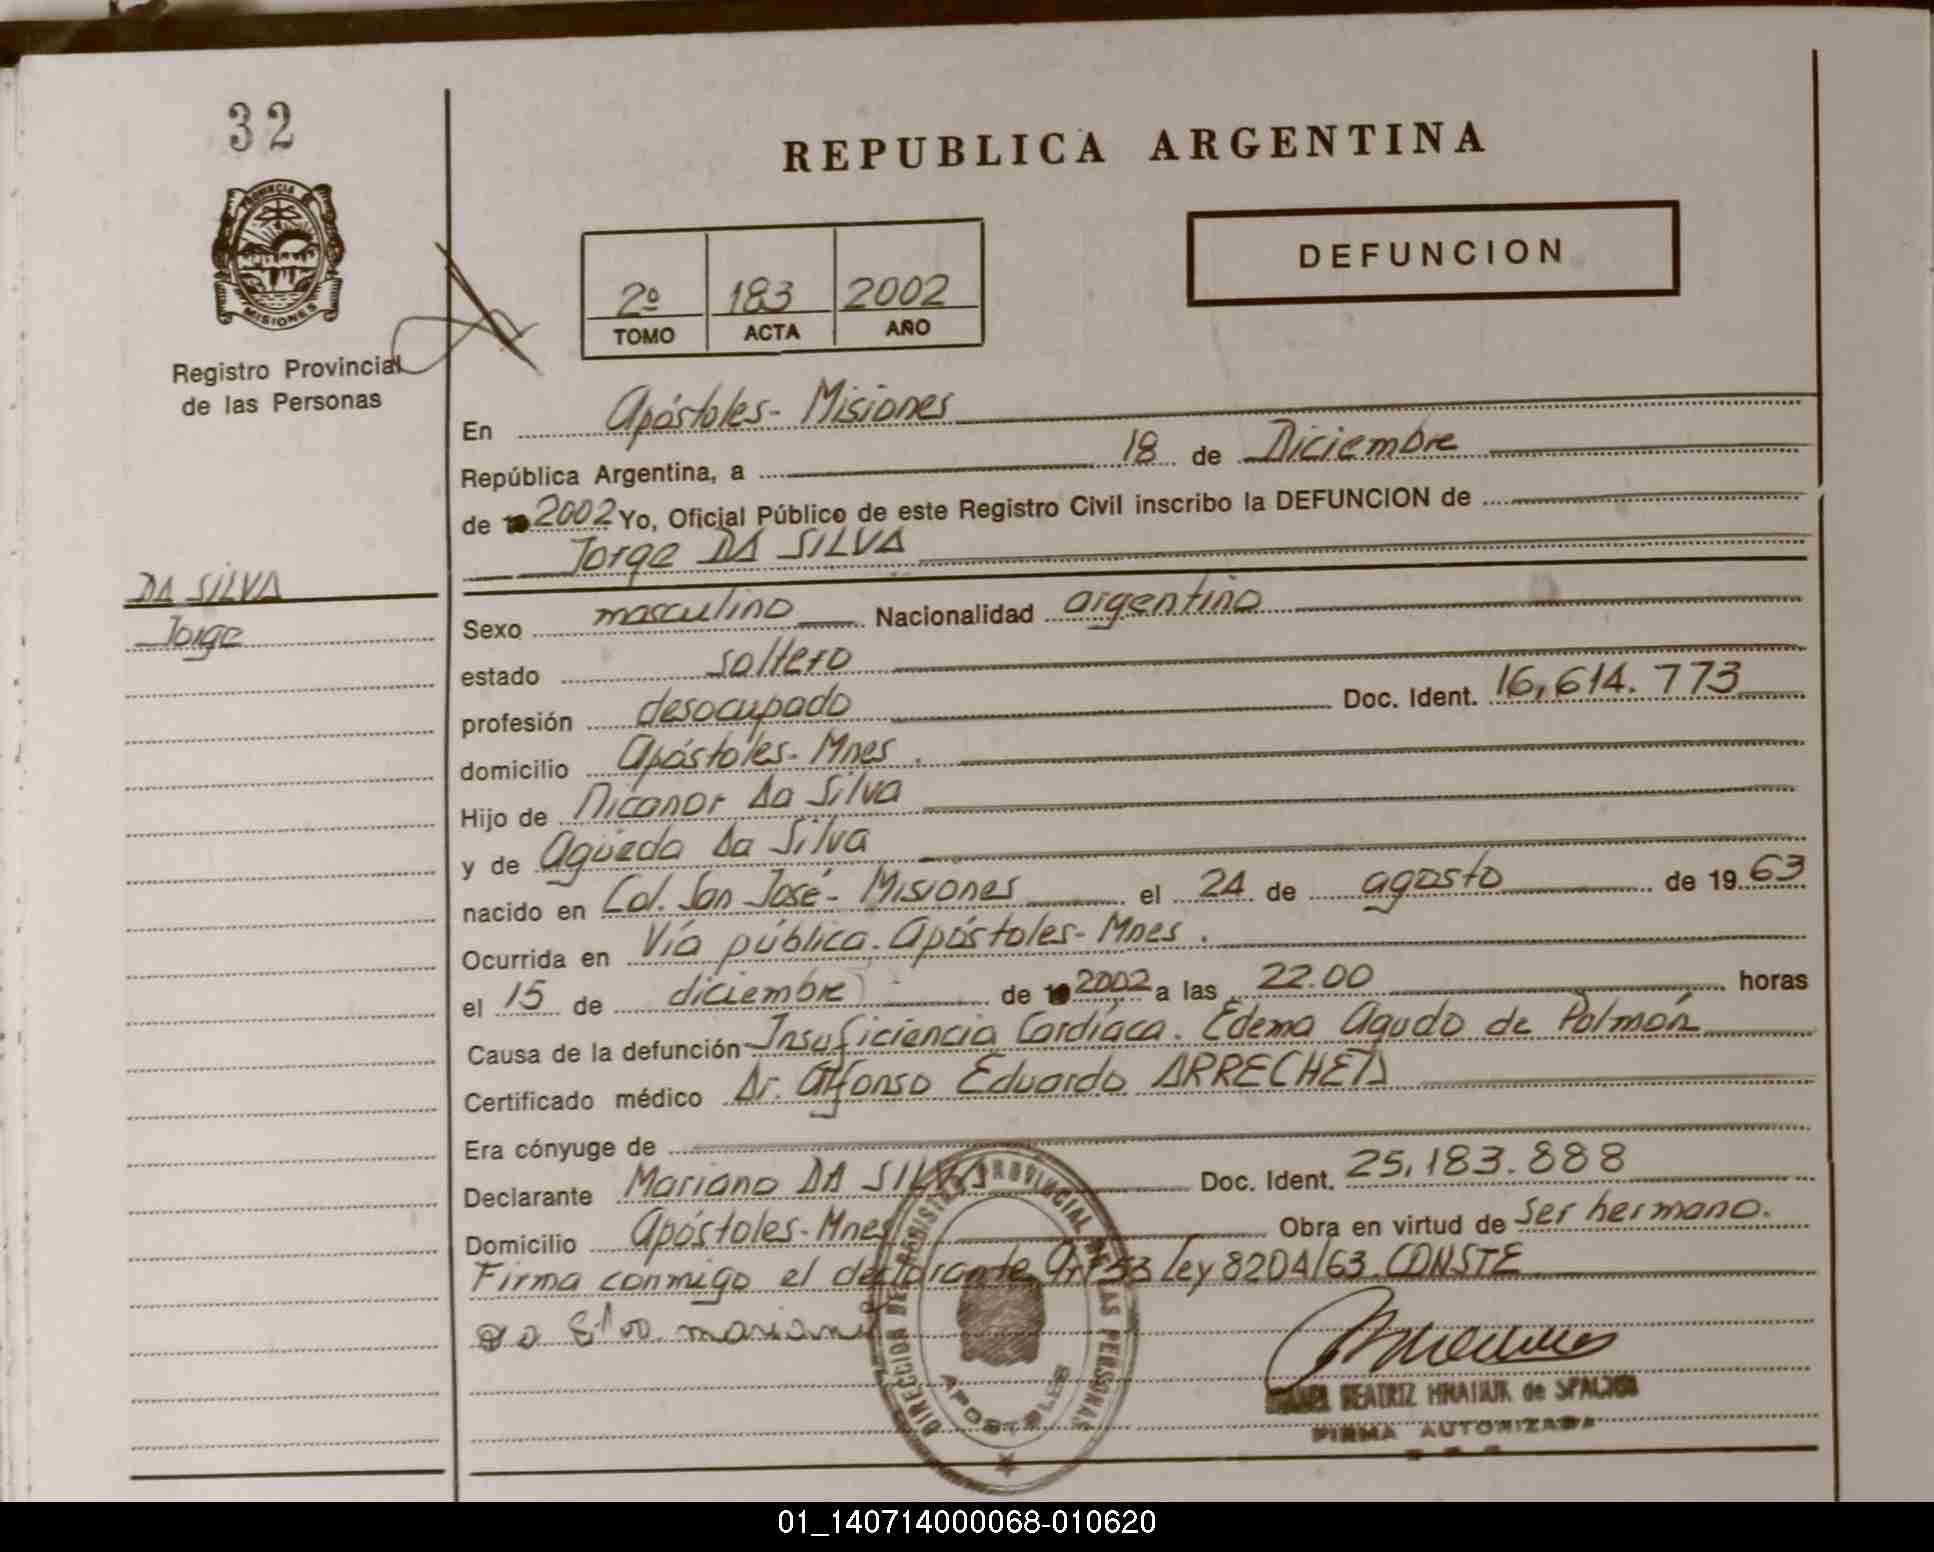 32
REPUBLICA ARGENTINA
PROVINCIA
MISIONES
Registro Provincial
de las Personas
2º 183 2002
TOMO ACTA AÑO
DEFUNCION
En Apóstoles - Misiones
República Argentina, a 18 de Diciembre
de 2002 Yo, Oficial Público de este Registro Civil inscribo la DEFUNCION de
Jorge DA SILVA
DA SILVA
Jorge
Sexo masculino Nacionalidad argentino
estado soltero
profesión desocupado Doc. Ident. 16,614.773
domicilio Apóstoles - Mnes.
Hijo de Nicanor Da Silva
y de Agüeda Da Silva
nacido en Col. San José - Misiones el 24 de agosto de 1963
Ocurrida en Vía pública. Apóstoles - Mnes.
el 15 de diciembre de 2002 a las 22.00 horas
Causa de la defunción Insuficiencia Cardíaca. Edema Agudo de Polmón
Certificado médico Dr. Alfonso Eduardo ARRECHEA
Era cónyuge de
Declarante Mariano DA SILVA Doc. Ident. 25,183.888
Domicilio Apóstoles - Mnes Obra en virtud de ser hermano.
Firma conmigo el declarante Art 53 Ley 8204/63 CONSTE
mariano
DIRECCION DE REGISTRO PROVINCIAL DE LAS PERSONAS
APOSTOLES
BEATRIZ de
FIRMA AUTORIZADA
01_140714000068-010620